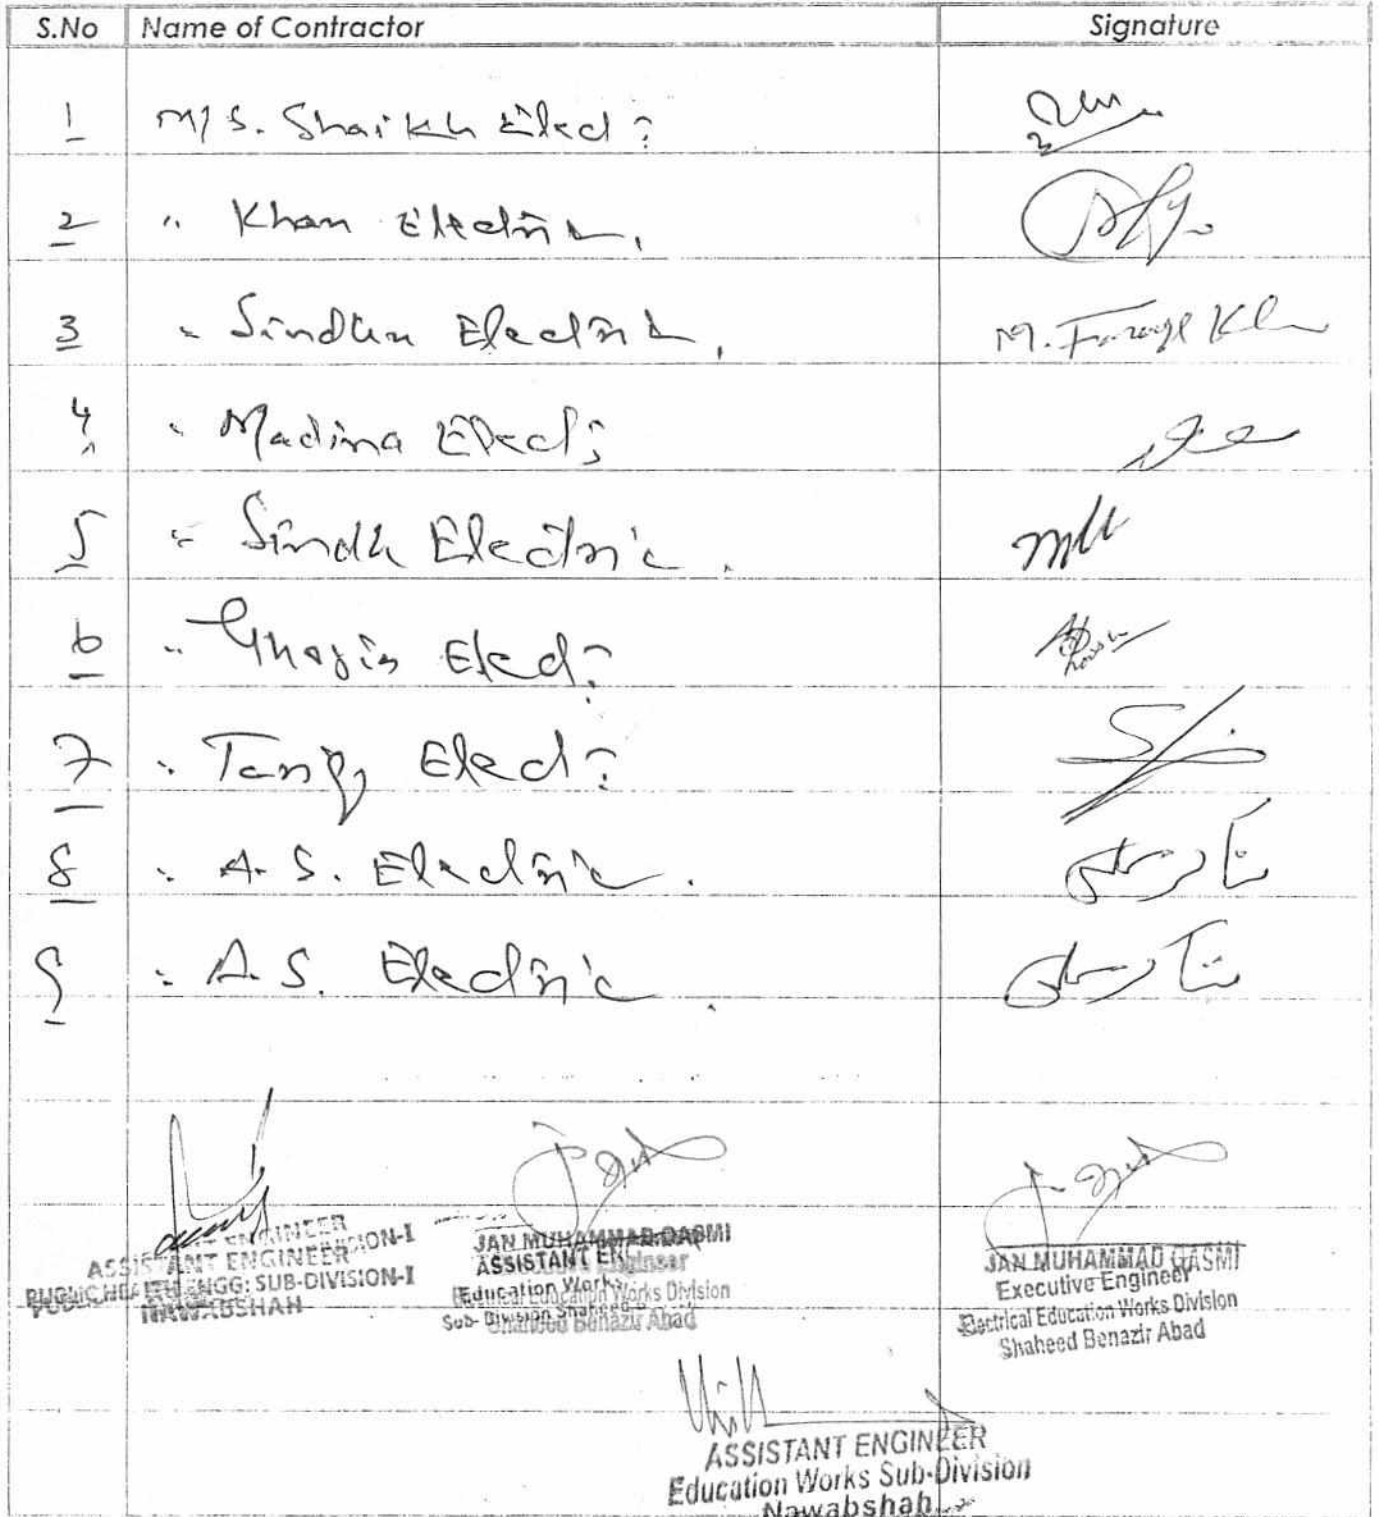 S.No Name of Contractor Signature
1 M/S. Shaikh Elect:
2 " Khan Electric.
3 " Sindhu Electric. M. Farooq Khan
4 " Madina Elect:
5 " Sindh Electric.
6 " Elect:
7 " Tariq Elect:
8 " A.S. Electric.
9 " A.S. Electric.
ASSISTANT ENGINEER
PUBLIC HEALTH ENGG: SUB-DIVISION-I
NAWABSHAH
JAN MUHAMMAD QASMI
ASSISTANT ENGINEER
Education Works
Sub-Division Shaheed Benazir Abad
JAN MUHAMMAD QASMI
Executive Engineer
Electrical Education Works Division
Shaheed Benazir Abad
ASSISTANT ENGINEER
Education Works Sub-Division
Nawabshah